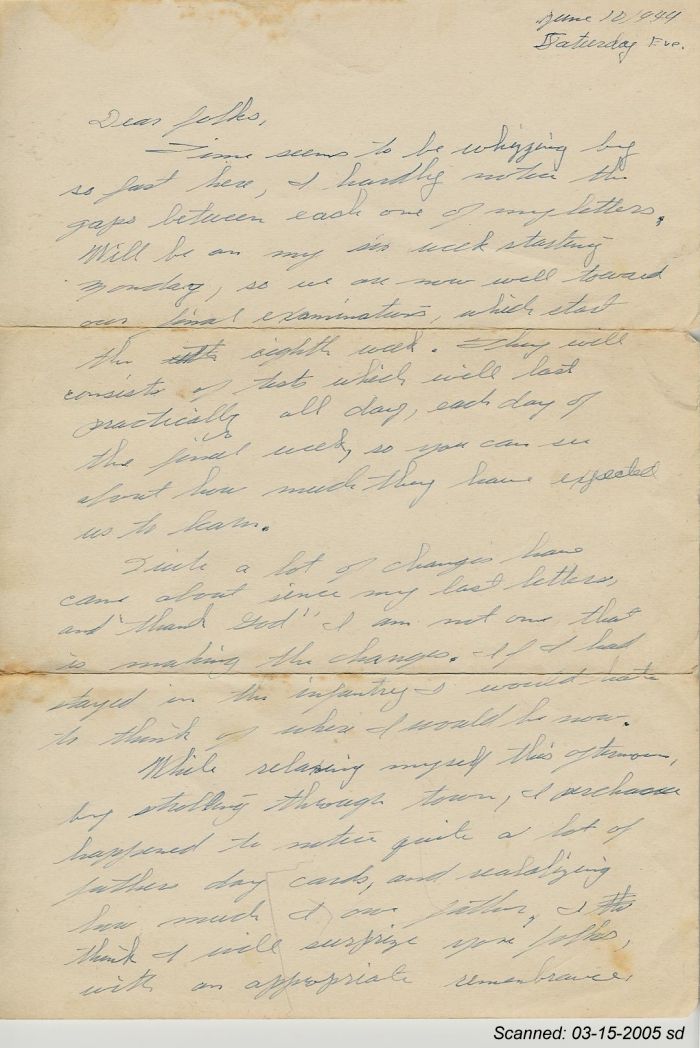 June 10, 1944
Saturday Eve.
Dear folks,
Time seems to be whizzing by
so fast here, I hardly notice the
gaps between each one of my letters.
Will be on my six week starting
Monday, so we are now well toward
our final examinations, which start
the eighth week. They will
consists of tests which will last
practically all day, each day of
the final week, so you can see
about how much they have expected
us to learn.
Quite a lot of changes have
came about since my last letters,
and "thank God" I am not one that
is making the changes. If I had
stayed in the infantry I would hate
to think of where I would be now.
While relaxing myself this afternoon,
by strolling through town, I perchance
happened to notice quite a lot of
fathers day cards, and realizing
how much I owe father, I
think I will surprize you folks,
with an appropriate remembrance.
Scanned: 03-15-2005 sd